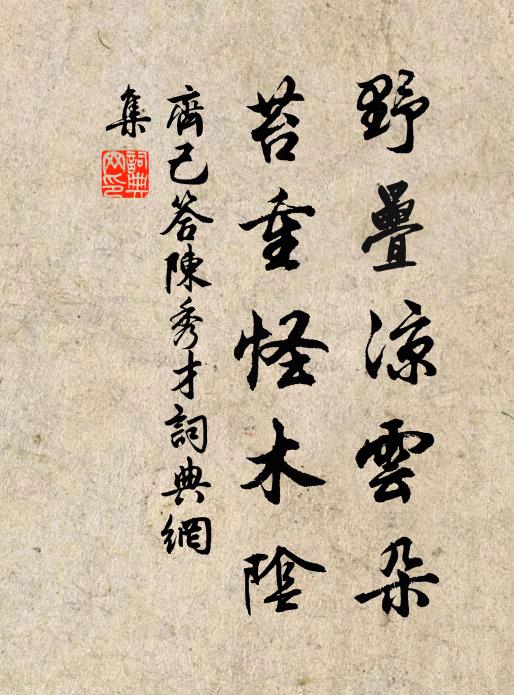 野疊涼雲朵
苔重怪木陰
齊己答陳秀才詞典網
集
詞典
网印